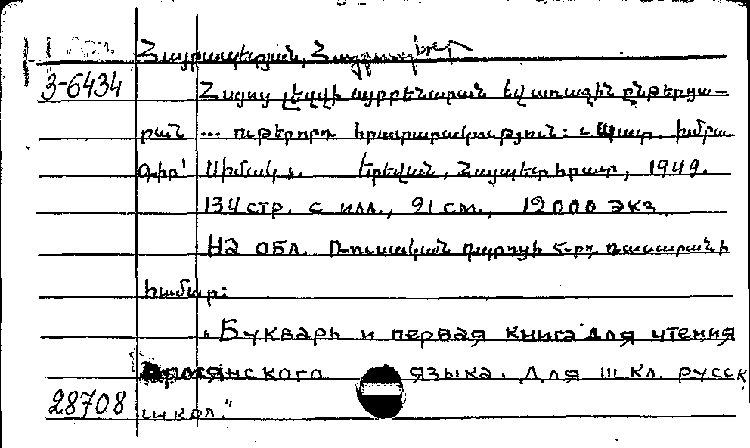 Հայրապետյան, Հայրապետ
3-6434 Հայոց լեզվի այբբենարան եվ առաջին ընթերցա-
րան ... ութերորդ հրատարակություն: Պատ. խմբա
գիր՝ Երեվան, Հայպետհրատ, 1949.
134 стр. с илл., 21 см., 12000 экз.
На обл. Ռուսական դպրոցի 5-րդ դասարանի
համար:
„Букварь и первая книга для чтения
армянского языка. Для III кл. русск
28708 школ."